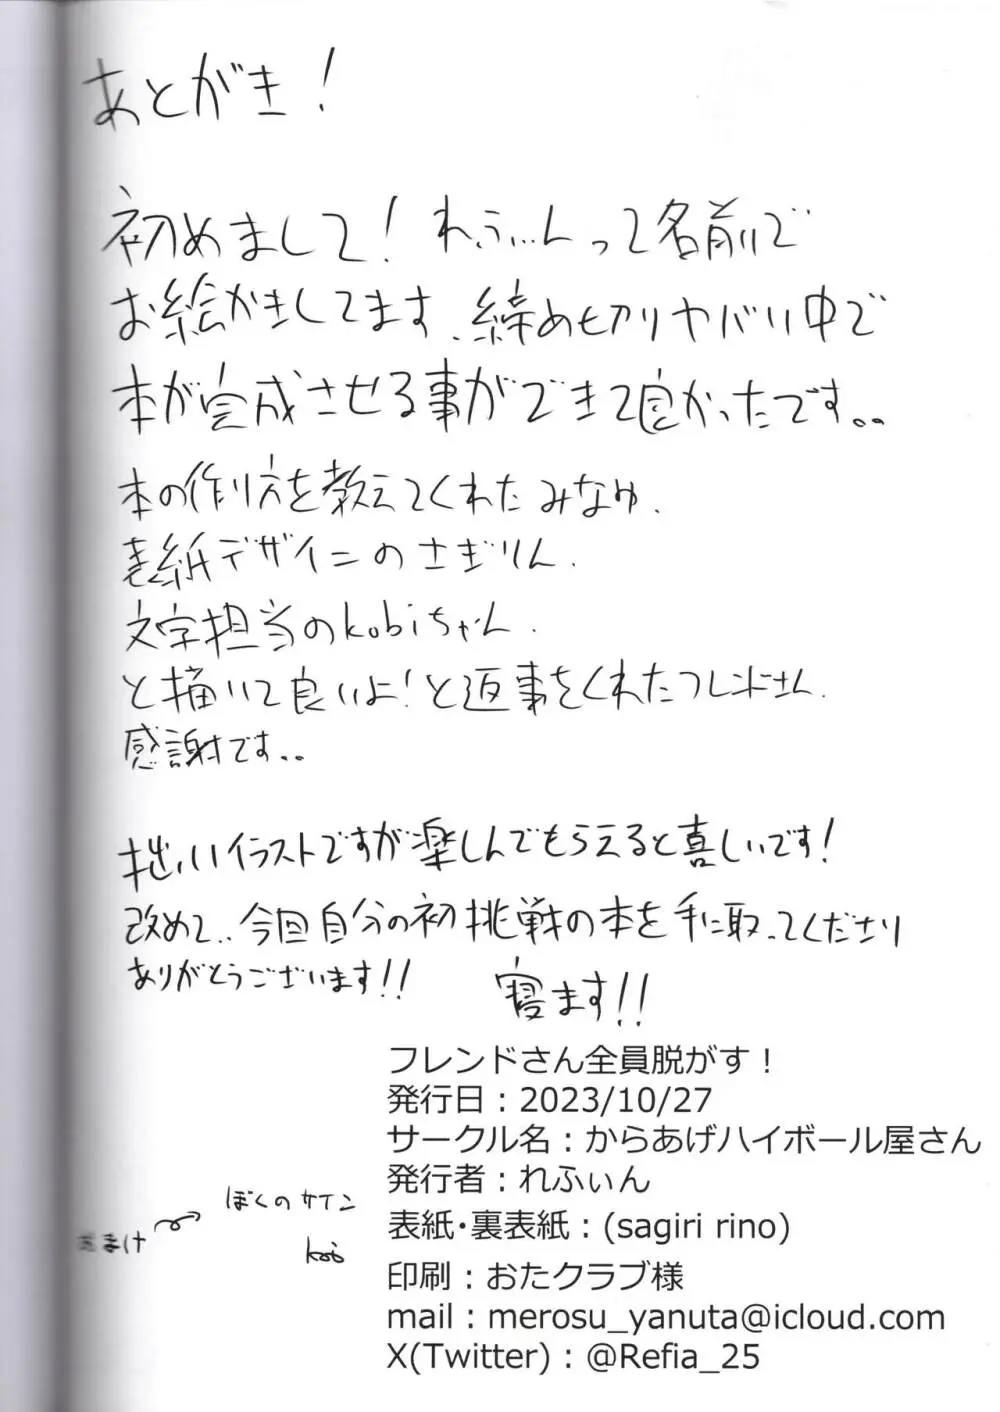 あとがき！
初めまして！れふぃんって名前で
お絵かきしてます、締め切りヤバい中で
本が完成させる事ができて良かったです。。
本の作り方を教えてくれたみなゆ、
表紙デザインのさぎりん、
文字担当のkobiちゃん、
と描いて良いよ！と返事をくれたフレンドさん、
感謝です。。
拙いイラストですが楽しんでもらえると喜しいです！
改めて、、今回自分の初挑戦の本を手に取ってくださり
ありがとうございます！！
寝ます！！
フレンドさん全員脱がす！
発行日：2023/10/27
サークル名：からあげハイボール屋さん
発行者：れふぃん
表紙・裏表紙：(sagiri rino)
印刷：おたクラブ様
mail：merosu_yanuta@icloud.com
X(Twitter)：@Refia_25
おまけ
ぼくのサイン